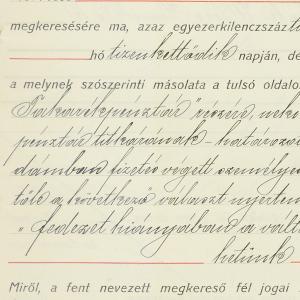 megkeresésére ma, azaz egyezerkilenczszáz
hó tizenkettődik napján, dé
a melynek szószerinti másolata a tulsó oldalo
Takarékpénztár" részére, neki
pénztár titkárának - határozo
dámban fizetés végett személye
tőle a következő választ nyertem
„fedezet hiányában a vált
hetünk
Miről, a fent nevezett megkereső fél jogai